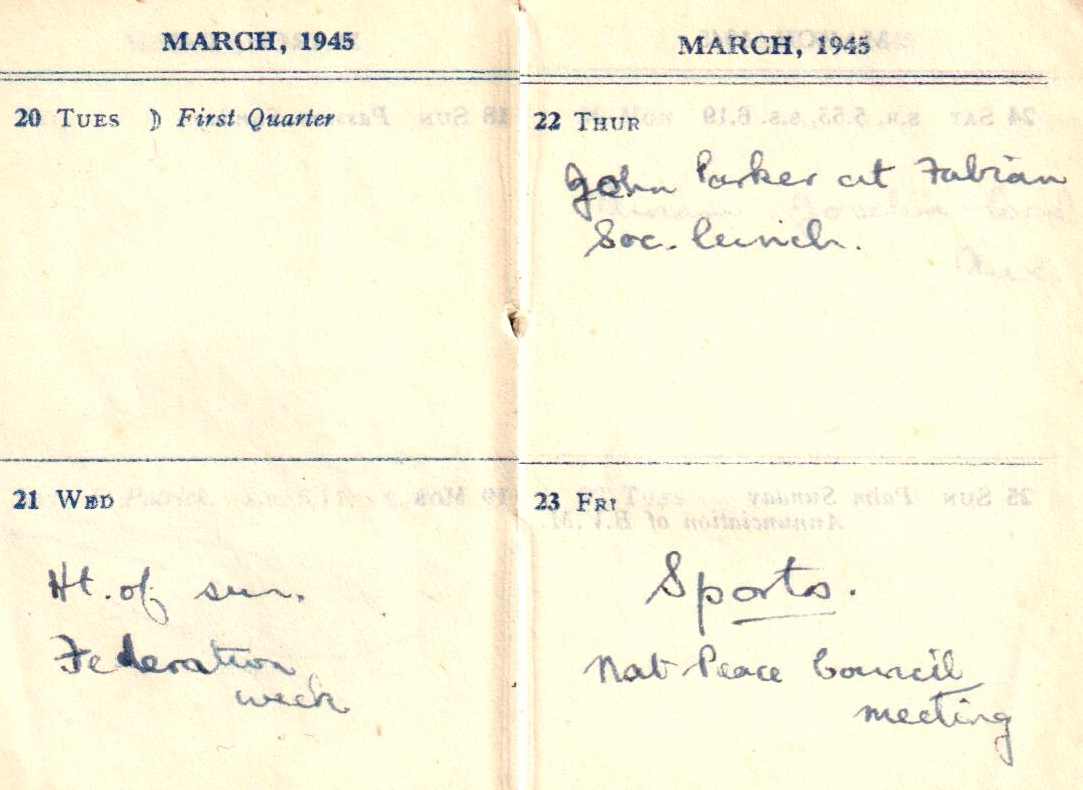 MARCH, 1945
20 TUES ☽ First Quarter
21 WED
Ht. of sun.
Federation
week
MARCH, 1945
22 THUR
John Parker at Fabian
Soc. lunch.
23 FRI
Sports.
Nat Peace Council
meeting